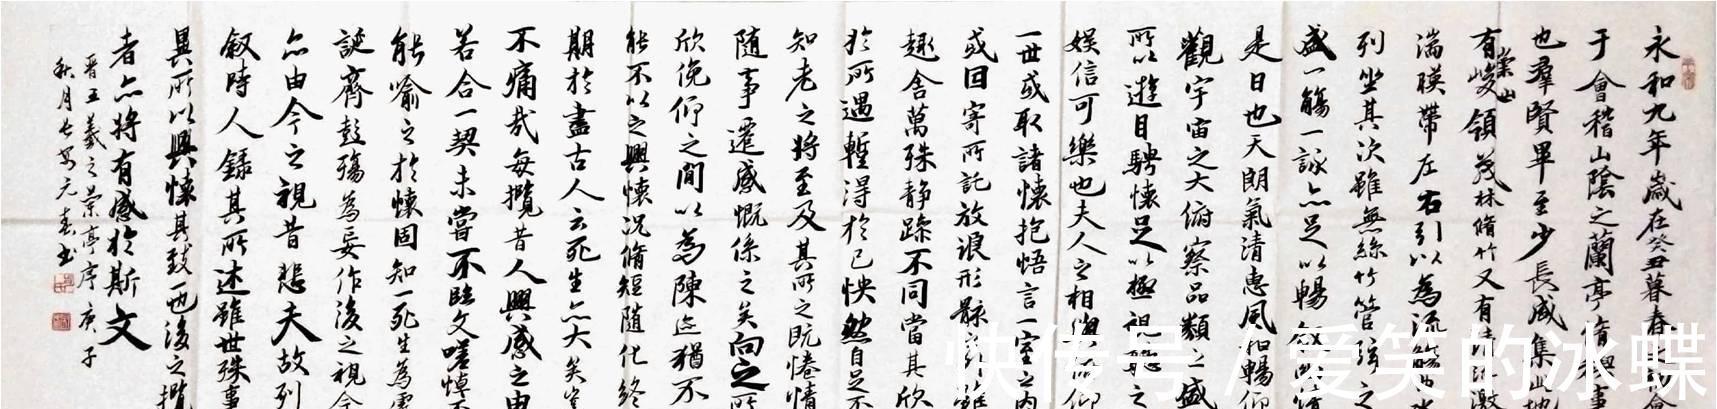 永和九年歲在癸丑暮春
于會稽山陰之蘭亭脩禊事
也羣賢畢至少長咸集此地
有崇山峻領茂林脩竹又有清流激
湍暎帶左右引以為流觴曲水
列坐其次雖無絲竹管弦之
盛一觴一詠亦足以暢叙幽情
是日也天朗氣清惠風和暢仰
觀宇宙之大俯察品類之盛
所以遊目騁懷足以極視聽之
娛信可樂也夫人之相與俯仰
一世或取諸懷抱悟言一室之內
或因寄所託放浪形骸之外雖
趣舍萬殊静躁不同當其欣
於所遇蹔得於己怏然自足不
知老之將至及其所之既惓情
隨事遷感慨係之矣向之所
欣俛仰之間以為陳迹猶不
能不以之興懷况脩短隨化終
期於盡古人云死生亦大矣豈
不痛哉每攬昔人興感之由
若合一契未嘗不臨文嗟悼不
能喻之於懷固知一死生為虛
誕齊彭殤為妄作後之視今
亦由今之視昔悲夫故列
叙時人錄其所述雖世殊事
異所以興懷其致一也後之攬
者亦將有感於斯文
晋王羲之蘭亭序庚子
秋月
快传号/爱笑的冰蝶